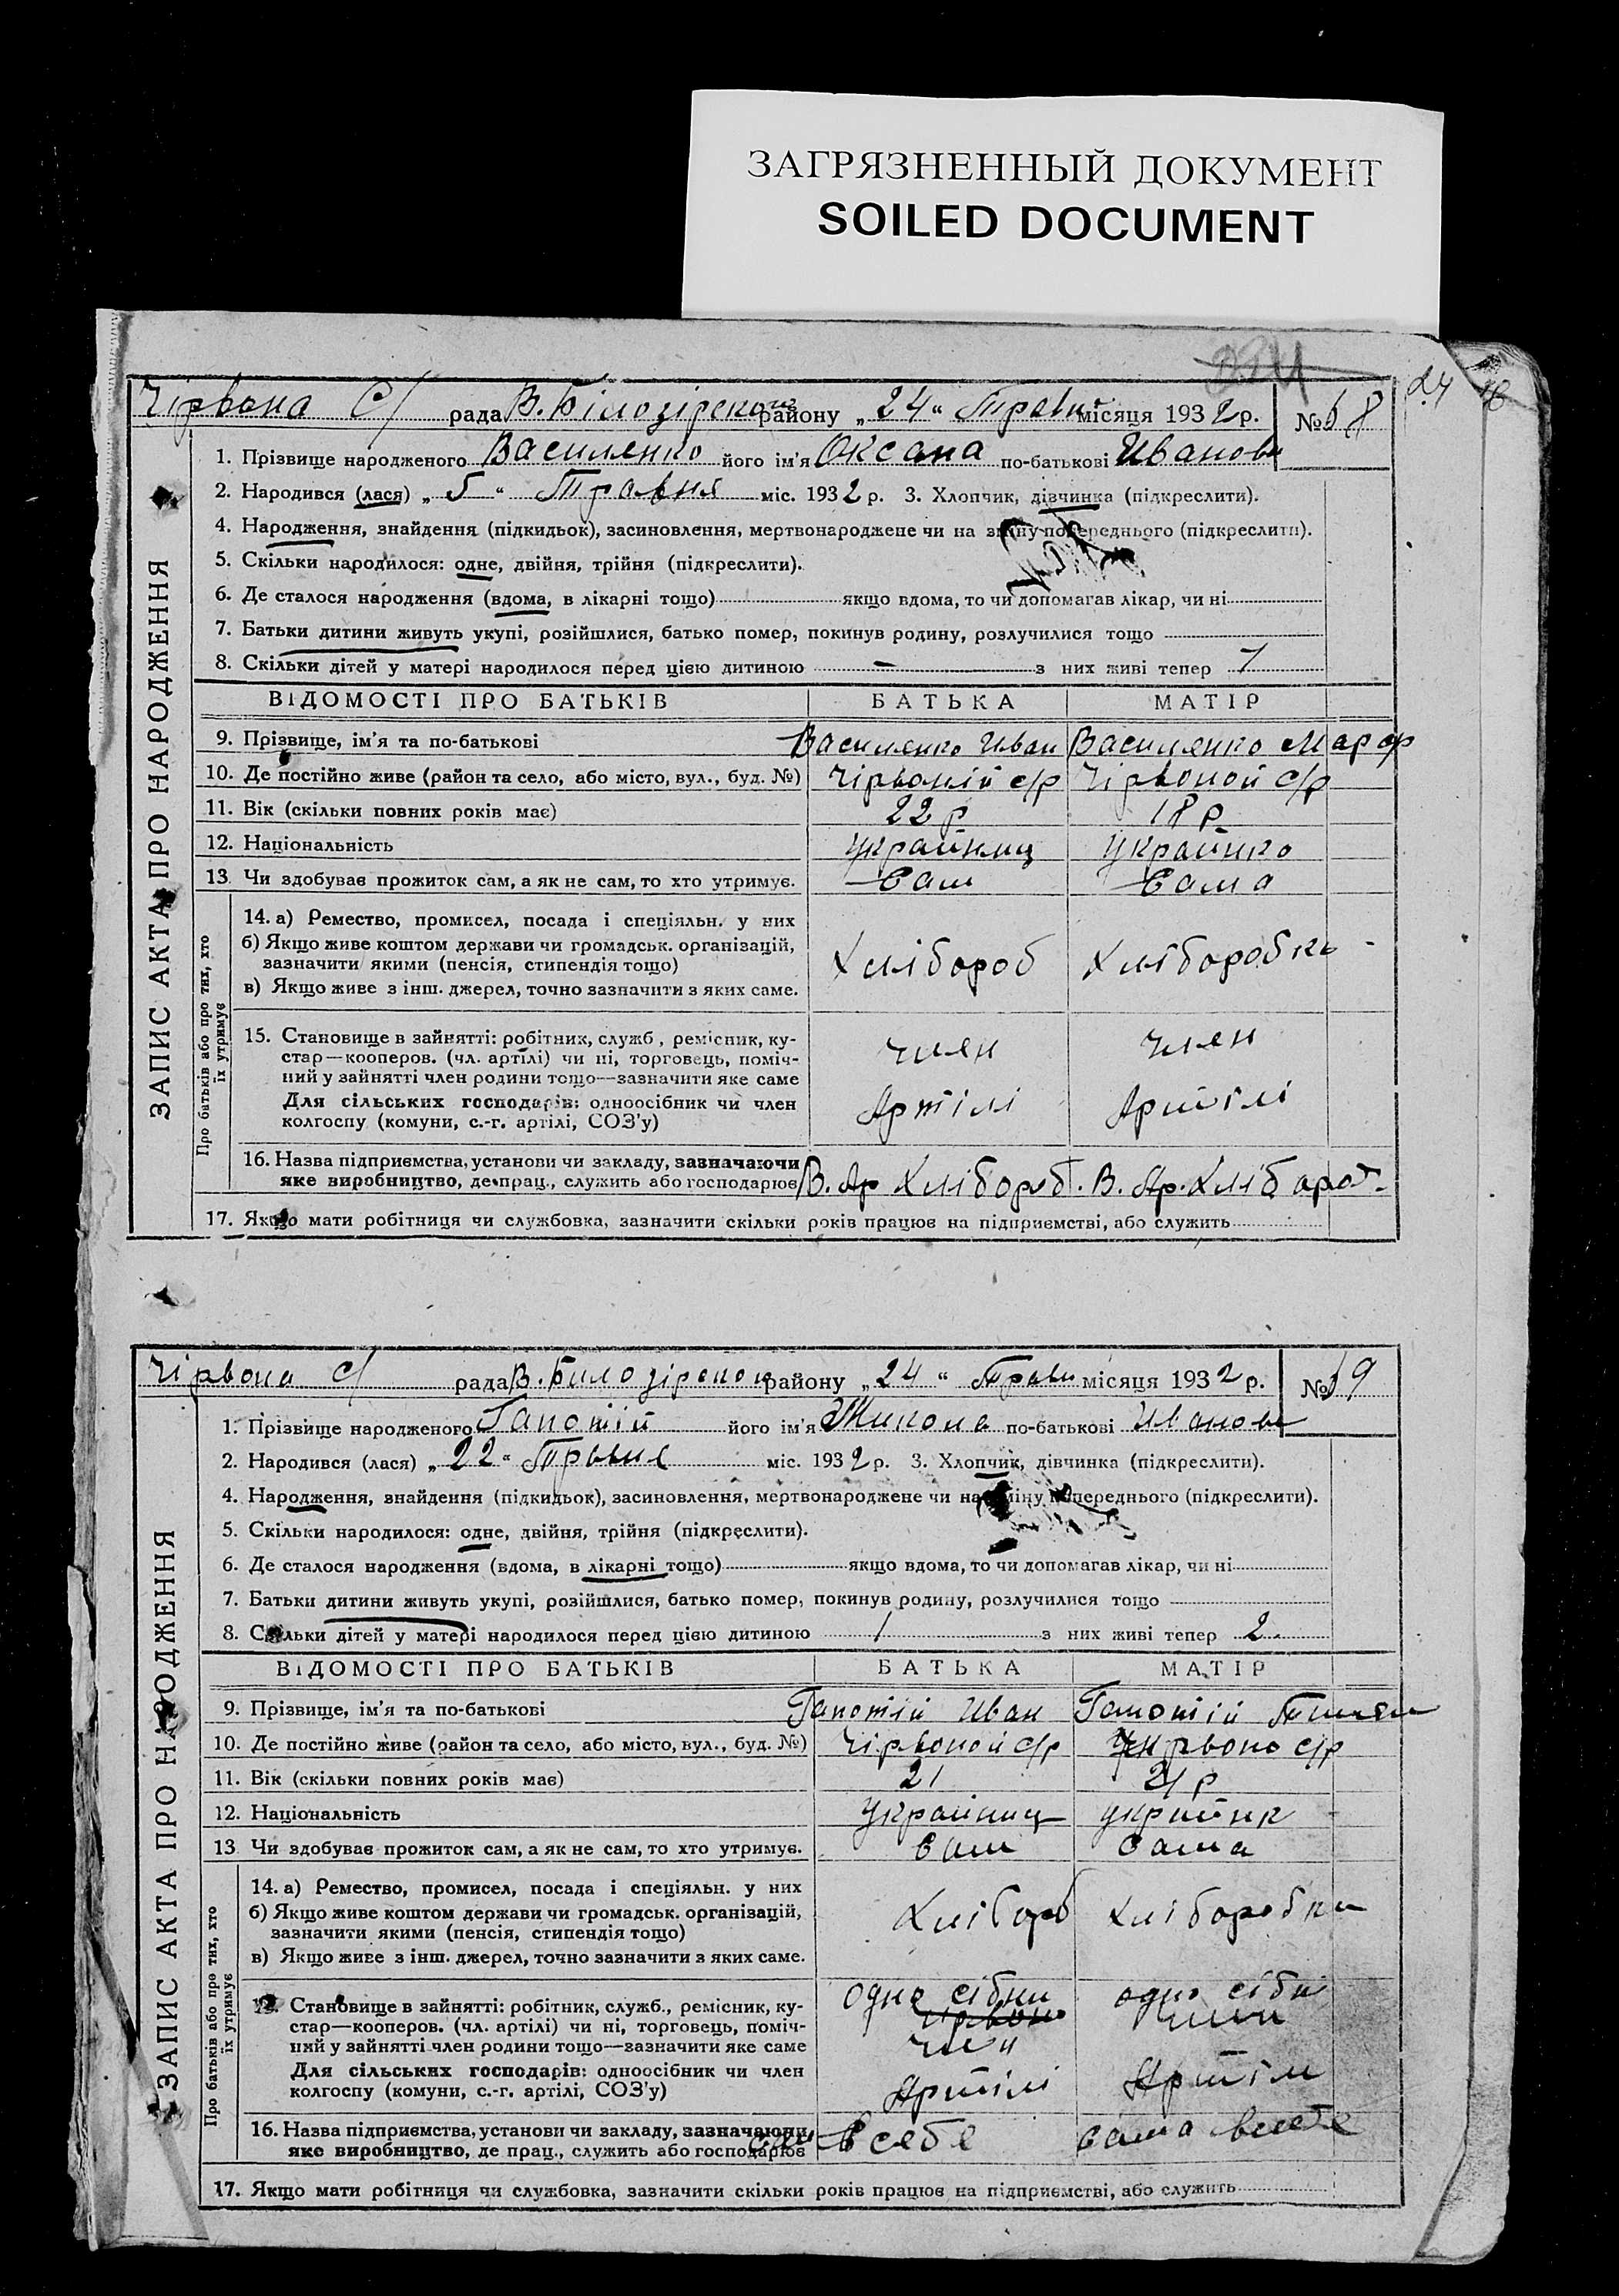 ЗАГРЯЗНЕННЫЙ ДОКУМЕНТ
SOILED DOCUMENT
24 18
Чірвона С/ рада В. Білозірсконо району „24“ Травня місяця 1932 р. № 18
1. Прізвище народженого Василенко його ім'я Оксана по-батькові Иванови
2. Народився (лася) „5“ Травня міс. 1932 р. 3. Хлопчик, дівчинка (підкреслити).
4. Народження, знайдення (підкидьок), засиновлення, мертвонароджене чи на зміну попереднього (підкреслити).
5. Скільки народилося: одне, двійня, трійня (підкреслити).
6. Де сталося народження (вдома, в лікарні тощо) якщо вдома, то чи допомагав лікар, чи ні
7. Батьки дитини живуть укупі, розійшлися, батько помер, покинув родину, розлучилися тощо
8. Скільки дітей у матері народилося перед цією дитиною — з них живі тепер 1
ВІДОМОСТІ ПРО БАТЬКІВ БАТЬКА МАТІР
9. Прізвище, ім'я та по-батькові Василенко Иван Василенко Марф
10. Де постійно живе (район та село, або місто, вул., буд. №) Чірвоній с/р Чірвоной с/р
11. Вік (скільки повних років має) 22 р 18 р
12. Національність Украйнец Украинко
13 Чи здобуває прожиток сам, а як не сам, то хто утримує. Сам Сама
14. а) Ремество, промисел, посада і спеціяльн. у них
б) Якщо живе коштом держави чи громадськ. організацій,
зазначити якими (пенсія, стипендія тощо) Хлібороб Хліборобка
в) Якщо живе з інш. джерел, точно зазначити з яких саме.
15. Становище в зайнятті: робітник, служб, ремісник, ку-
стар—кооперов. (чл. артілі) чи ні, торговець, поміч- член член
ний у зайнятті член родини тощо—зазначити яке саме
Для сільських господарів: одноосібник чи член Артілі Артілі
колгоспу (комуни, с.-г. артілі, СОЗ'у)
16. Назва підприємства, установи чи закладу, зазначаючи
яке виробництво, де прац., служить або господарює В. Ар Хлібороб. В. Ар. Хлібороб.
17. Якщо мати робітниця чи службовка, зазначити скільки років працює на підприємстві, або служить
ЗАПИС АКТА ПРО НАРОДЖЕННЯ
Про батьків або про тих, хто
їх утримує
Чірвона С/ рада В. Билозірского району „24“ Травн місяця 1932 р. № 19
1. Прізвище народженого Гапотій його ім'я Микола по-батькові Иванови
2. Народився (лася) „22“ Травня міс. 1932 р. 3. Хлопчик, дівчинка (підкреслити).
4. Народження, знайдення (підкидьок), засиновлення, мертвонароджене чи на зміну попереднього (підкреслити).
5. Скільки народилося: одне, двійня, трійня (підкреслити).
6. Де сталося народження (вдома, в лікарні тощо) якщо вдома, то чи допомагав лікар, чи ні
7. Батьки дитини живуть укупі, розійшлися, батько помер, покинув родину, розлучилися тощо
8. Скільки дітей у матері народилося перед цією дитиною 1 з них живі тепер 2.
ВІДОМОСТІ ПРО БАТЬКІВ БАТЬКА МАТІР
9. Прізвище, ім'я та по-батькові Гапотій Иван Гапотій
10. Де постійно живе (район та село, або місто, вул., буд. №) Чірвоной с/р Чирвоно с/р
11. Вік (скільки повних років має) 21 21 р
12. Національність Украйниц украйнк
13 Чи здобуває прожиток сам, а як не сам, то хто утримує. Сам Сама
14. а) Ремество, промисел, посада і спеціяльн. у них
б) Якщо живе коштом держави чи громадськ. організацій, Хлібороб Хліборобка
зазначити якими (пенсія, стипендія тощо)
в) Якщо живе з інш. джерел, точно зазначити з яких саме.
15. Становище в зайнятті: робітник, служб., ремісник, ку- одно сібни одно сібн
стар—кооперов. (чл. артілі) чи ні, торговець, поміч-
ний у зайнятті член родини тощо—зазначити яке саме член
Для сільських господарів: одноосібник чи член Артілі Артіли
колгоспу (комуни, с.-г. артілі, СОЗ'у)
16. Назва підприємства, установи чи закладу, зазначаючи
яке виробництво, де прац., служить або господарює сам в себе сама в себе
17. Якщо мати робітниця чи службовка, зазначити скільки років працює на підприємстві, або служить
ЗАПИС АКТА ПРО НАРОДЖЕННЯ
Про батьків або про тих, хто
їх утримує